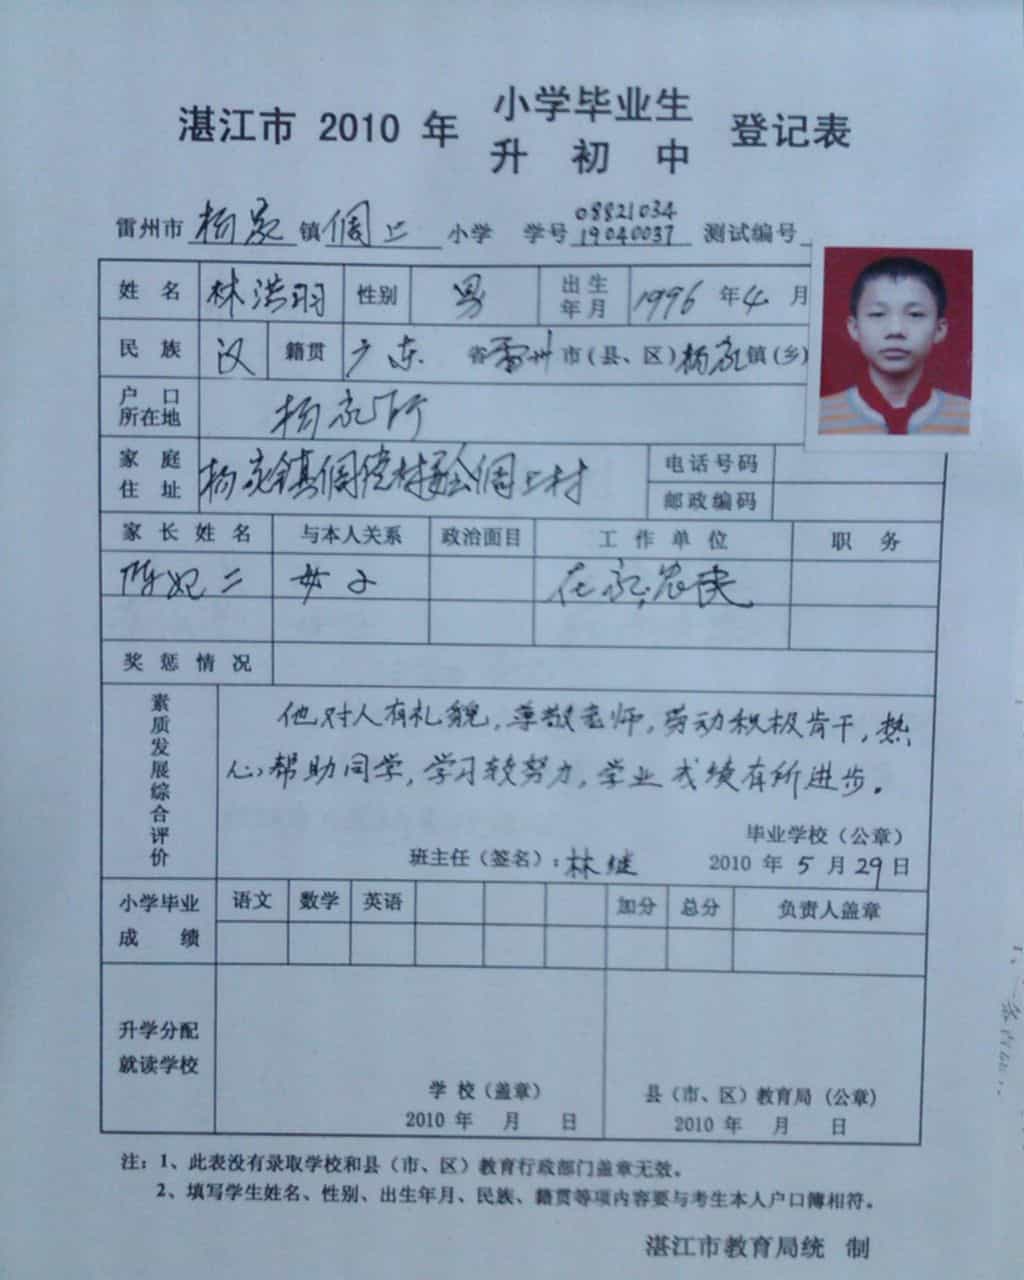 湛江市 2010 年 小学毕业生 登记表
升 初 中
雷州市 杨家 镇 倜上 小学 学号 08821034 19040037 测试编号
姓 名 林浩羽 性别 男 出生年月 1996 年 4 月
民 族 汉 籍贯 广东 省 雷州 市(县、区) 杨家 镇(乡)
户 口 所在地 杨家所
家 庭 住 址 杨家镇 村委会 上村 电话号码
邮政编码
家 长 姓 名 与本人关系 政治面目 工 作 单 位 职 务
陈妃二 女子 在家农
奖 惩 情 况
素质发展综合评价
他对人有礼貌,尊敬老师,劳动积极肯干,热
心帮助同学,学习较努力,学业成绩有所进步。
毕业学校(公章)
班主任(签名):林继 2010 年 5 月 29 日
小学毕业 成 绩 语文 数学 英语 加分 总分 负责人盖章
升学分配
就读学校
学 校(盖章) 县(市、区)教育局(公章)
2010 年 月 日 2010 年 月 日
注:1、此表没有录取学校和县(市、区)教育行政部门盖章无效。
2、填写学生姓名、性别、出生年月、民族、籍贯等项内容要与考生本人户口簿相符。
湛江市教育局统 制